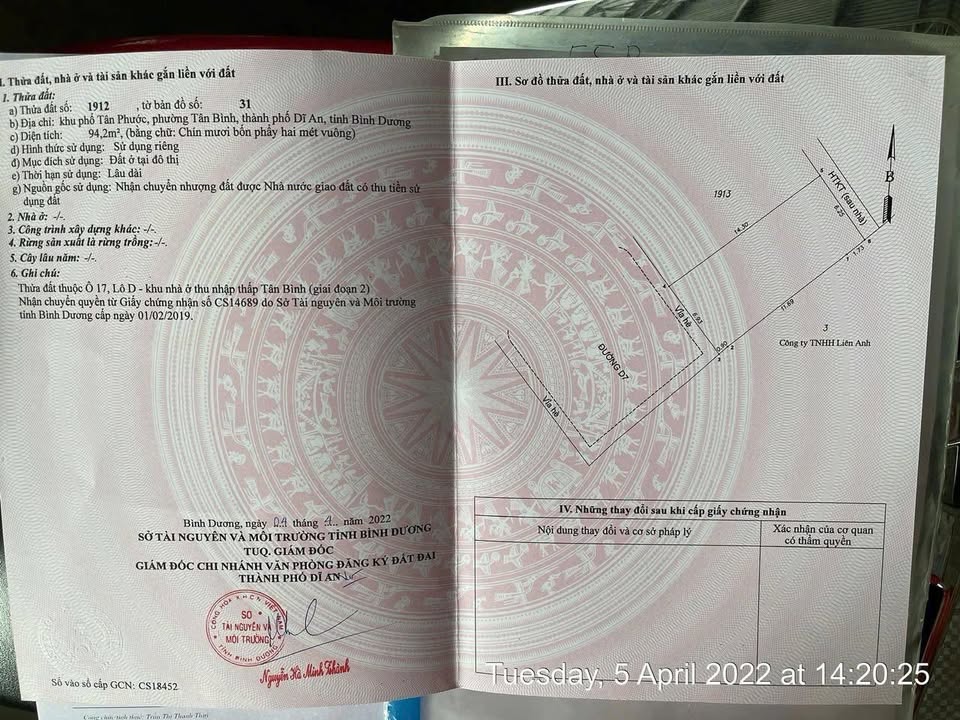 I. Thửa đất, nhà ở và tài sản khác gắn liền với đất
1. Thửa đất:
a) Thửa đất số: 1912 , tờ bản đồ số: 31
b) Địa chỉ: khu phố Tân Phước, phường Tân Bình, thành phố Dĩ An, tỉnh Bình Dương
c) Diện tích: 94,2m², (bằng chữ: Chín mươi bốn phẩy hai mét vuông)
d) Hình thức sử dụng: Sử dụng riêng
đ) Mục đích sử dụng: Đất ở tại đô thị
e) Thời hạn sử dụng: Lâu dài
g) Nguồn gốc sử dụng: Nhận chuyển nhượng đất được Nhà nước giao đất có thu tiền sử
dụng đất
2. Nhà ở: -/-.
3. Công trình xây dựng khác: -/-.
4. Rừng sản xuất là rừng trồng: -/-.
5. Cây lâu năm: -/-.
6. Ghi chú:
Thửa đất thuộc Ô 17, Lô D - khu nhà ở thu nhập thấp Tân Bình (giai đoạn 2)
Nhận chuyển quyền từ Giấy chứng nhận số CS14689 do Sở Tài nguyên và Môi trường
tỉnh Bình Dương cấp ngày 01/02/2019.
Bình Dương, ngày tháng năm 2022
SỞ TÀI NGUYÊN VÀ MÔI TRƯỜNG TỈNH BÌNH DƯƠNG
TUQ. GIÁM ĐỐC
GIÁM ĐỐC CHI NHÁNH VĂN PHÒNG ĐĂNG KÝ ĐẤT ĐAI
THÀNH PHỐ DĨ AN
CỘNG HÒA X.H.C.N VIỆT NAM
SỞ
TÀI NGUYÊN VÀ
MÔI TRƯỜNG
TỈNH BÌNH DƯƠNG
Nguyễn Hà Minh Thành
Số vào sổ cấp GCN: CS18452
III. Sơ đồ thửa đất, nhà ở và tài sản khác gắn liền với đất
B
1913
HTKT (sau nhà)
5
6.25
6
14.50
1.73
7
4
11.69
6.93
Vỉa hè
3
Công ty TNHH Liên Anh
0.90
2
3
ĐƯỜNG D7
Vỉa hè
IV. Những thay đổi sau khi cấp giấy chứng nhận
Nội dung thay đổi và cơ sở pháp lý
Xác nhận của cơ quan
có thẩm quyền
Tuesday, 5 April 2022 at 14:20:25